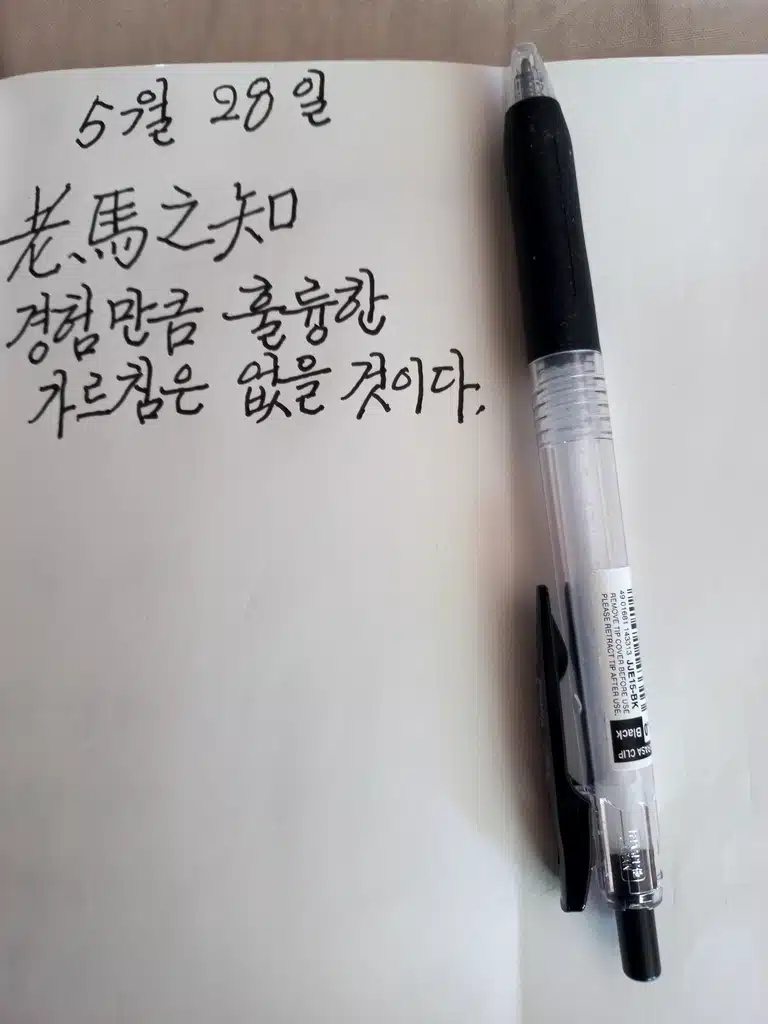 5월 28일
老馬之知
경험만큼 훌륭한
가르침은 없을 것이다.
49 01681 143313 JJE15-BK
REMOVE TIP COVER BEFORE USE
PLEASE RETRACT TIP AFTER USE.
Black
CLIP